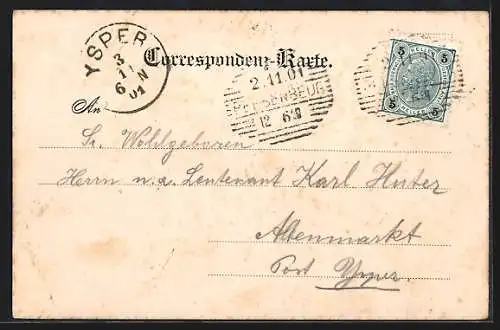 YSPER
3
11
6 N
01
Correspondenz-Karte.
2.11.01
PERSENBEUG
12 6 N
5 5
5 5
An
Sr. Wohlgeboren
Herrn n.a. Leutenant Karl Huter
Altenmarkt
Post Ysper.